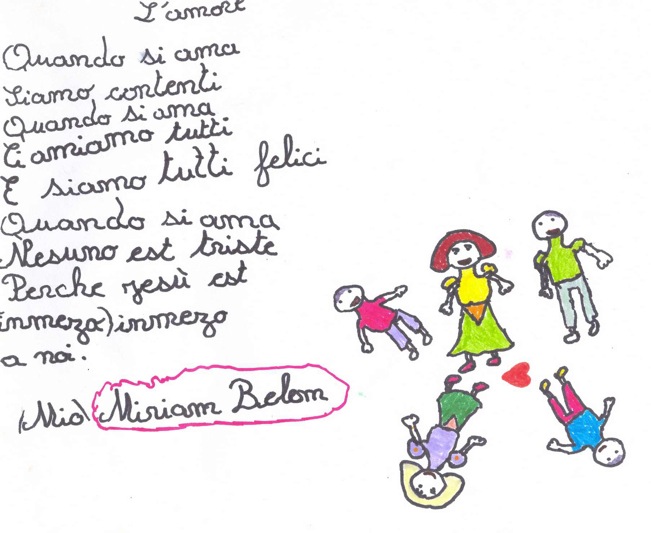 L'amore
Quando si ama
Siamo contenti
Quando si ama
Ci amiamo tutti
E siamo tutti felici
Quando si ama
Nesuno est triste
Perche gesù est
inmezo) inmezo
a noi.
(Mio) Miriam Belom